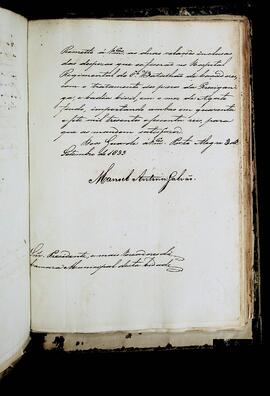 Remetto á Vmces. as duas relações inclusas
das despezas que se fizerão no Hospital
Regimental do 8º Batalhão de Caçadores,
com o tratamento dos presos da Prezigan
ga, e Cadea Civil, em o mez de Agosto
findo, importando ambas em quarenta
e sete mil trezentos e secenta reis, para
que as mandem satisfazer.
Deos Guarde a Vmces. Porto Alegre 3 de
Setembro de 1833
Manoel Antonio Galvão
Snr. Presidente, e mais Vereadores da
Camara Municipal desta Cidade